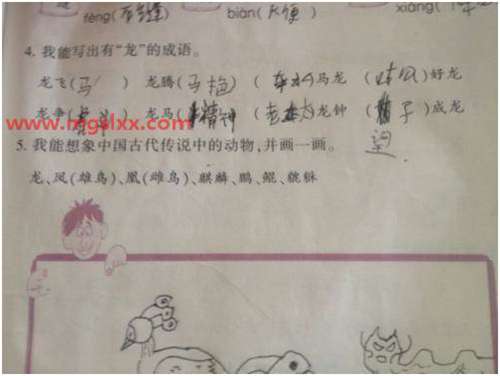 fēng( biàn( 便) xiàng(
4. 我能写出有“龙”的成语。
龙飞(马 ) 龙腾(马 ) ( )马龙 ( )好龙
龙争( ) 龙马(精神) (老 )龙钟 ( 子)成龙
www.mgslxx.com
5. 我能想象中国古代传说中的动物,并画一画。
龙、凤(雄鸟)、凰(雌鸟)、麒麟、鹏、鲲、貔貅